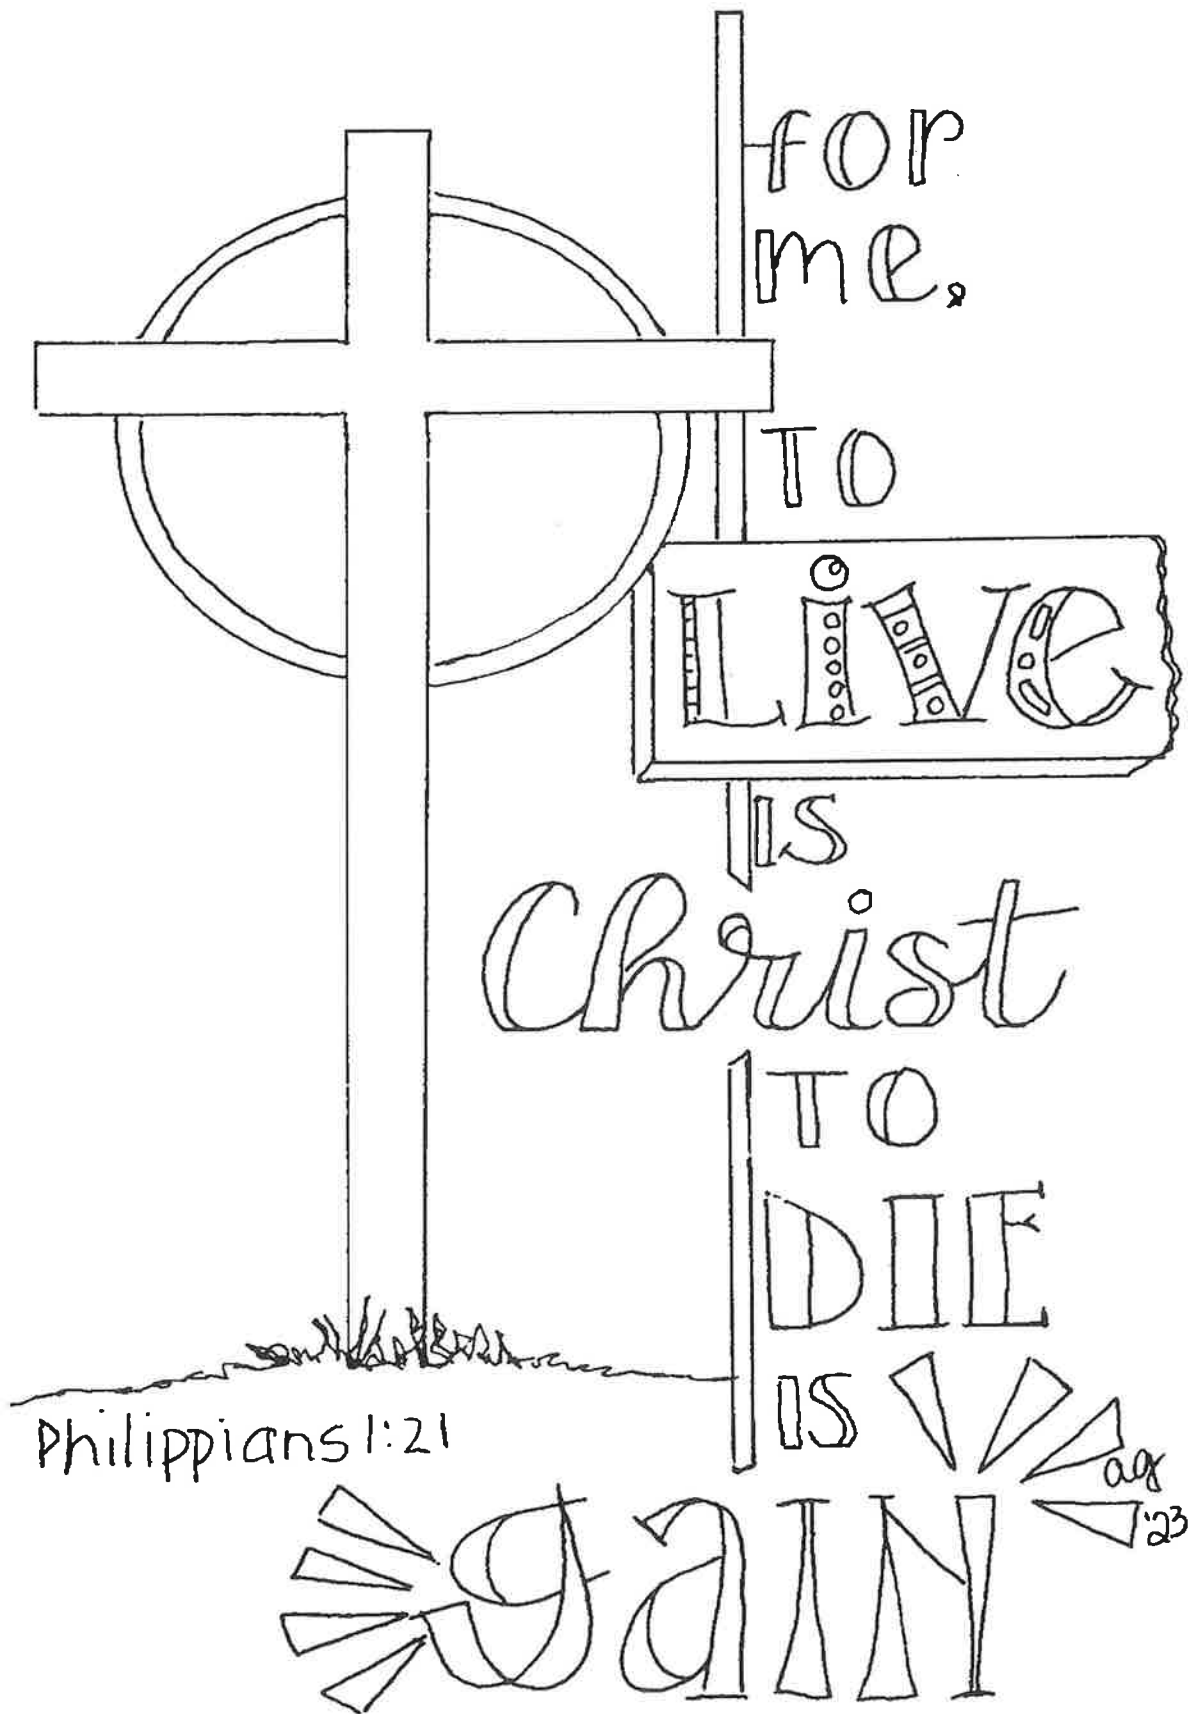 for
me,
TO
Live
is
Christ
TO
DIE
is
gaIN
Philippians 1:21
ag
'23